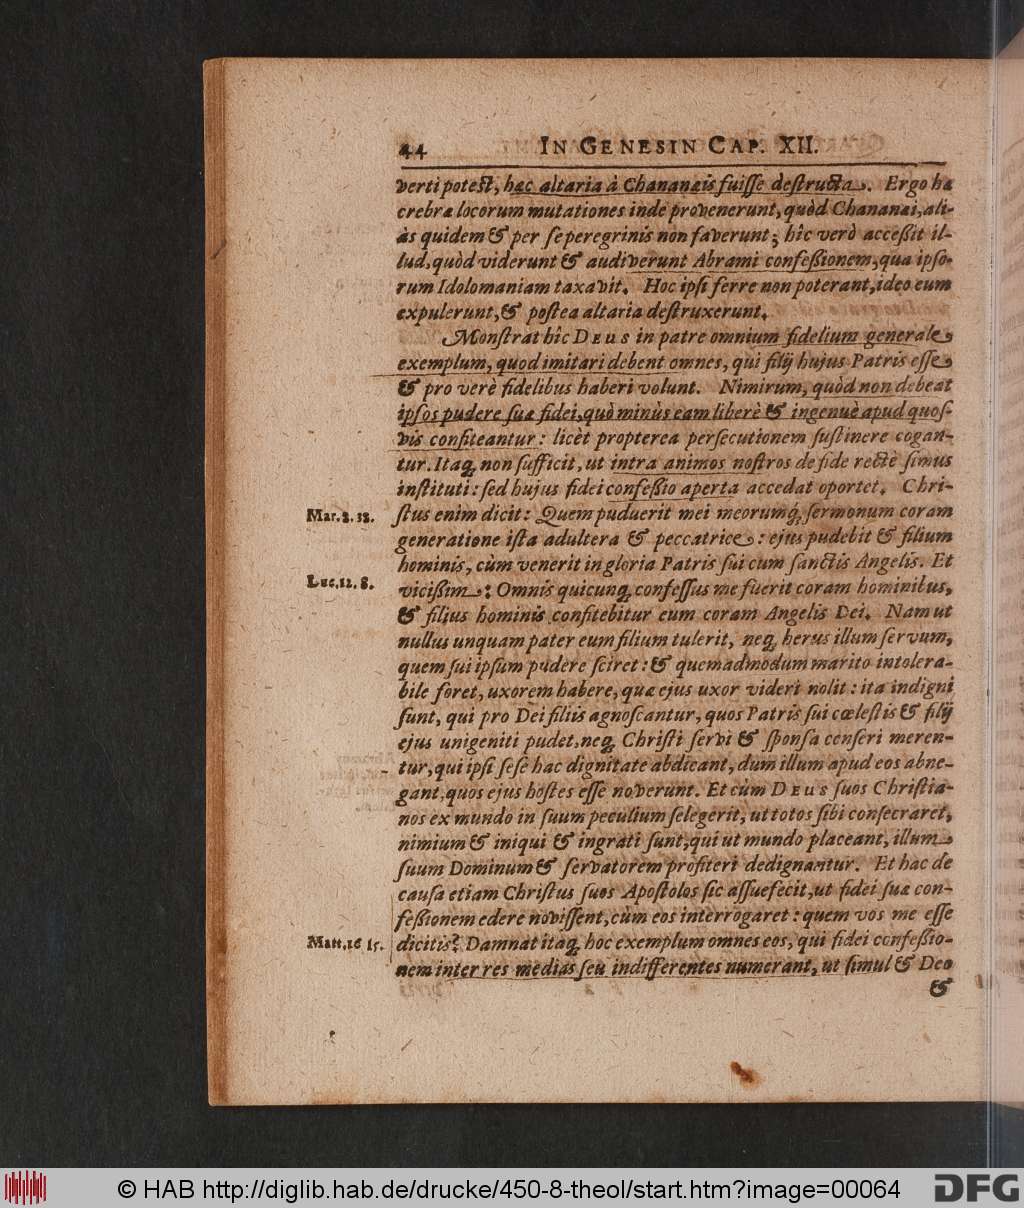 44 IN GENESIN CAP. XII.
verti potest, hæc altaria à Chananæis fuiſſe deſtructa. Ergo hæ
crebræ locorum mutationes inde provenerunt, quòd Chananæi, ali-
às quidem & per ſe peregrinis non faverunt; hîc verò acceßit il-
lud, quòd viderunt & audiverunt Abrami confeßionem, qua ipſo-
rum Idolomaniam taxavit. Hoc ipſi ferre non poterant, ideo eum
expulerunt, & poſtea altaria deſtruxerunt.
Monſtrat hîc DEUS in patre omnium fidelium generale
exemplum, quod imitari debent omnes, qui filij hujus Patris eſſe
& pro verè fidelibus haberi volunt. Nimirum, quòd non debeat
ipſos pudere ſuæ fidei, quò minùs eam liberè & ingenuè apud quoſ-
vis confiteantur: licèt propterea perſecutionem ſuſtinere cogan-
tur. Itaq; non ſufficit, ut intra animos noſtros de fide rectè ſimus
inſtituti: ſed hujus fidei confeſsio aperta accedat oportet. Chri-
Mar. 8. 38. ſtus enim dicit: Quem puduerit mei meorumq́; ſermonum coram
generatione iſta adultera & peccatrice: ejus pudebit & filium
hominis, cùm venerit in gloria Patris ſui cum ſanctis Angelis. Et
Luc. 12. 8. vicißim: Omnis quicunq; confeſſus me fuerit coram hominibus,
& filius hominis confitebitur eum coram Angelis Dei. Nam ut
nullus unquam pater eum filium tulerit, neq; herus illum ſervum,
quem ſui ipſum pudere ſciret: & quemadmodum marito intolera-
bile foret, uxorem habere, quæ ejus uxor videri nolit: ita indigni
ſunt, qui pro Dei filiis agnoſcantur, quos Patris ſui cœleſtis & filij
ejus unigeniti pudet, neq; Chriſti ſervi & ſponſa cenſeri meren-
tur, qui ipſi ſeſe hac dignitate abdicant, dum illum apud eos abne-
gant, quos ejus hoſtes eſſe noverunt. Et cùm DEUS ſuos Chriſtia-
nos ex mundo in ſuum peculium ſelegerit, ut totos ſibi conſecraret,
nimium & iniqui & ingrati ſunt, qui ut mundo placeant, illum
ſuum Dominum & ſervatorem profiteri dedignantur. Et hac de
cauſa etiam Chriſtus ſuos Apoſtolos ſic aſſuefecit, ut fidei ſuæ con-
feßionem edere noviſſent, cùm eos interrogaret: quem vos me eſſe
Matt. 16 15. dicitis? Damnat itaq; hoc exemplum omnes eos, qui fidei confeßio-
nem inter res medias ſeu indifferentes numerant, ut ſimul & Deo
&
© HAB http://diglib.hab.de/drucke/450-8-theol/start.htm?image=00064
DFG